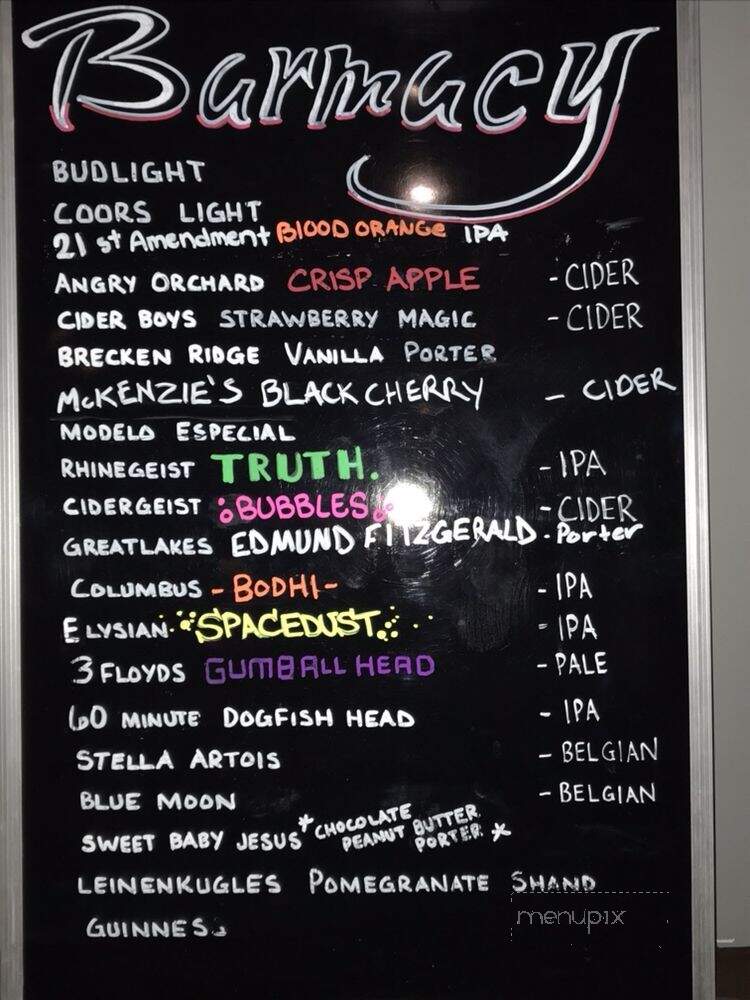 Barmacy
BUDLIGHT
COORS LIGHT
21st Amendment BlOOD ORANGe IPA
ANGRY ORCHARD CRISP APPLE - CIDER
CIDER BOYS STRAWBERRY MAGIC - CIDER
BRECKEN RIDGE VANILLA PORTER
McKENZIE'S BLACK CHERRY - CIDER
MODELO ESPECIAL
RHINEGEIST TRUTH. - IPA
CIDERGEIST BUBBLES - CIDER
GREATLAKES EDMUND FITZGERALD - Porter
COLUMBUS - BODHI - - IPA
ELYSIAN SPACEDUST - IPA
3 FLOYDS GUMBALL HEAD - PALE
60 MINUTE DOGFISH HEAD - IPA
STELLA ARTOIS - BELGIAN
BLUE MOON - BELGIAN
SWEET BABY JESUS * CHOCOLATE PEANUT BUTTER PORTER *
LEINENKUGLES POMEGRANATE SHAND
GUINNESS
menupix